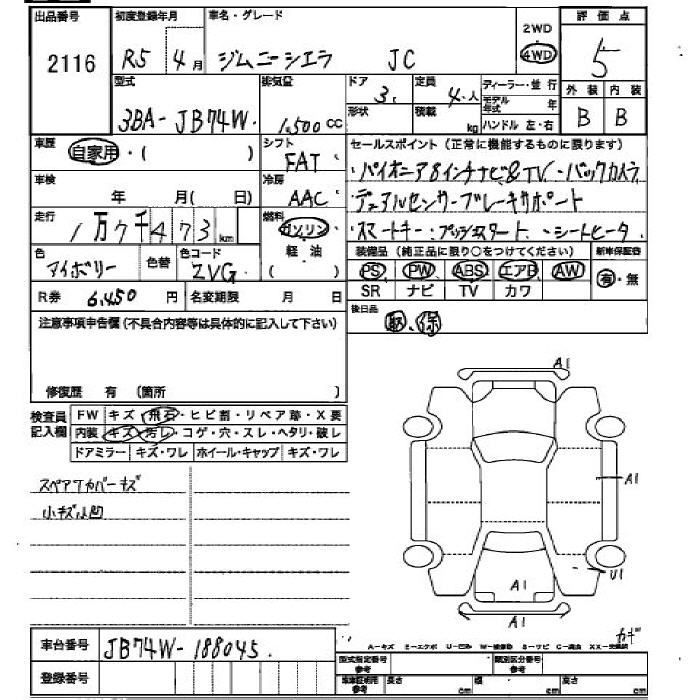 出品番号 初度登録年月 車名・グレード 評価点
2116 R5 4月 ジムニーシエラ JC 2WD 4WD 5
型式 排気量 ドア 3. 定員 4.人 ディーラー・並行 外装 内装
3BA-JB74W. 1,500cc 形状 積載 kg モデル年式 年 B B
ハンドル 左・右
車歴 自家用・( ) シフト FAT セールスポイント(正常に機能するものに限ります)
車検 年 月(日) 冷房 AAC ・パイオニア8インチナビ&TV ・バックカメラ
デュアルセンサーブレーキサポート
走行 1万7千473km 燃料 ガソリン 軽油 ( ) ・スマートキー・プッシュスタート ・シートヒータ
色 アイボリー 色替 色コード ZVG 装備品(純正品に限り○をつけてください) 新車保証書
PS PW ABS エアB AW 有・無
R券 6,450円 名変期限 月 日 SR ナビ TV カワ
注意事項申告欄(不具合内容等は具体的に記入して下さい) 後日品 取.保
修復歴 有 (箇所 )
検査員記入欄 FW キズ・飛石・ヒビ割・リペア跡・X要
内装 キズ・汚レ・コゲ・穴・スレ・ヘタリ・破レ
ドアミラー キズ・ワレ ホイール・キャップ キズ・ワレ
A1
スペアTカバーキズ A1
小キズ小凹
U1
A1
A1
カギ
車台番号 JB74W-188045. A-キズ E-エクボ U-凹み W-補修跡 S-サビ C-腐食 XX-交換済
登録番号 型式指定番号参考 類別区分番号参考
車車証明用参考 長さ cm 幅 cm 高さ cm